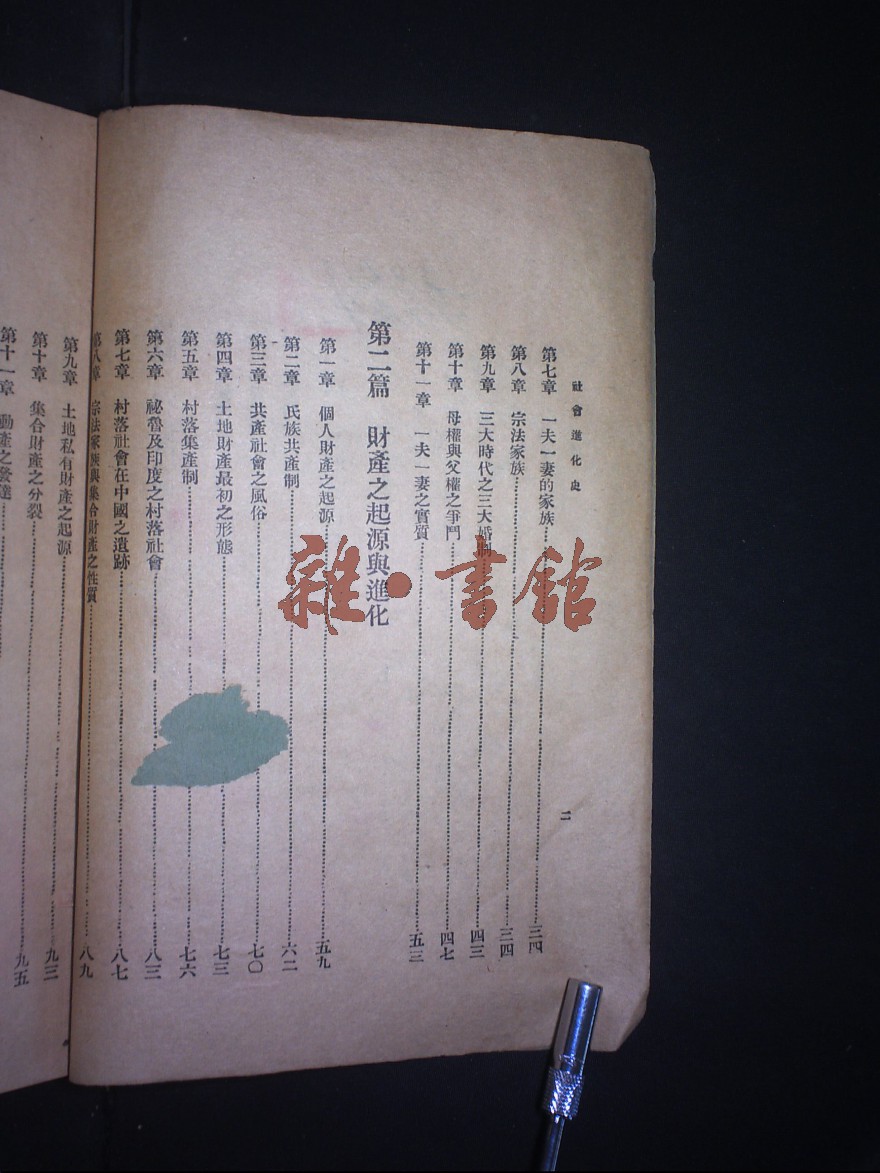 社會進化史
二
第七章 一夫一妻的家族 三四
第八章 宗法家族 三四
第九章 三大時代之三大婚 四三
第十章 母權與父權之爭鬥 四七
第十一章 一夫一妻之實質 五三
第二篇 財產之起源與進化
第一章 個人財產之起源 五九
第二章 民族共產制 六二
第三章 共產社會之風俗 七〇
第四章 土地財產最初之形態 七三
第五章 村落集產制 七六
第六章 祕魯及印度之村落社會 八三
第七章 村落社會在中國之遺跡 八七
第八章 宗法家族與集合財產之性質 八九
第九章 土地私有財產之起源 九三
第十章 集合財產之分裂
第十一章 動產之發達 九五
雜·書館